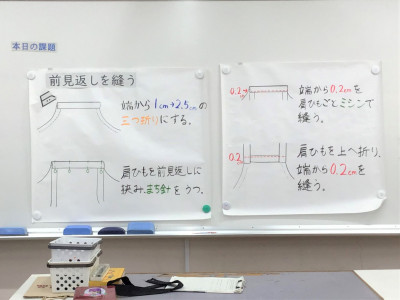 本日の課題
前見返しを縫う
端から1cm→2.5cmの
三つ折りにする。
肩ひもを前見返しに
挟み、まち針をうつ。
0.2
端から0.2cmを
肩ひもごとミシンで
縫う。
0.2
肩ひもを上へ折り、
端から0.2cmを
縫う。